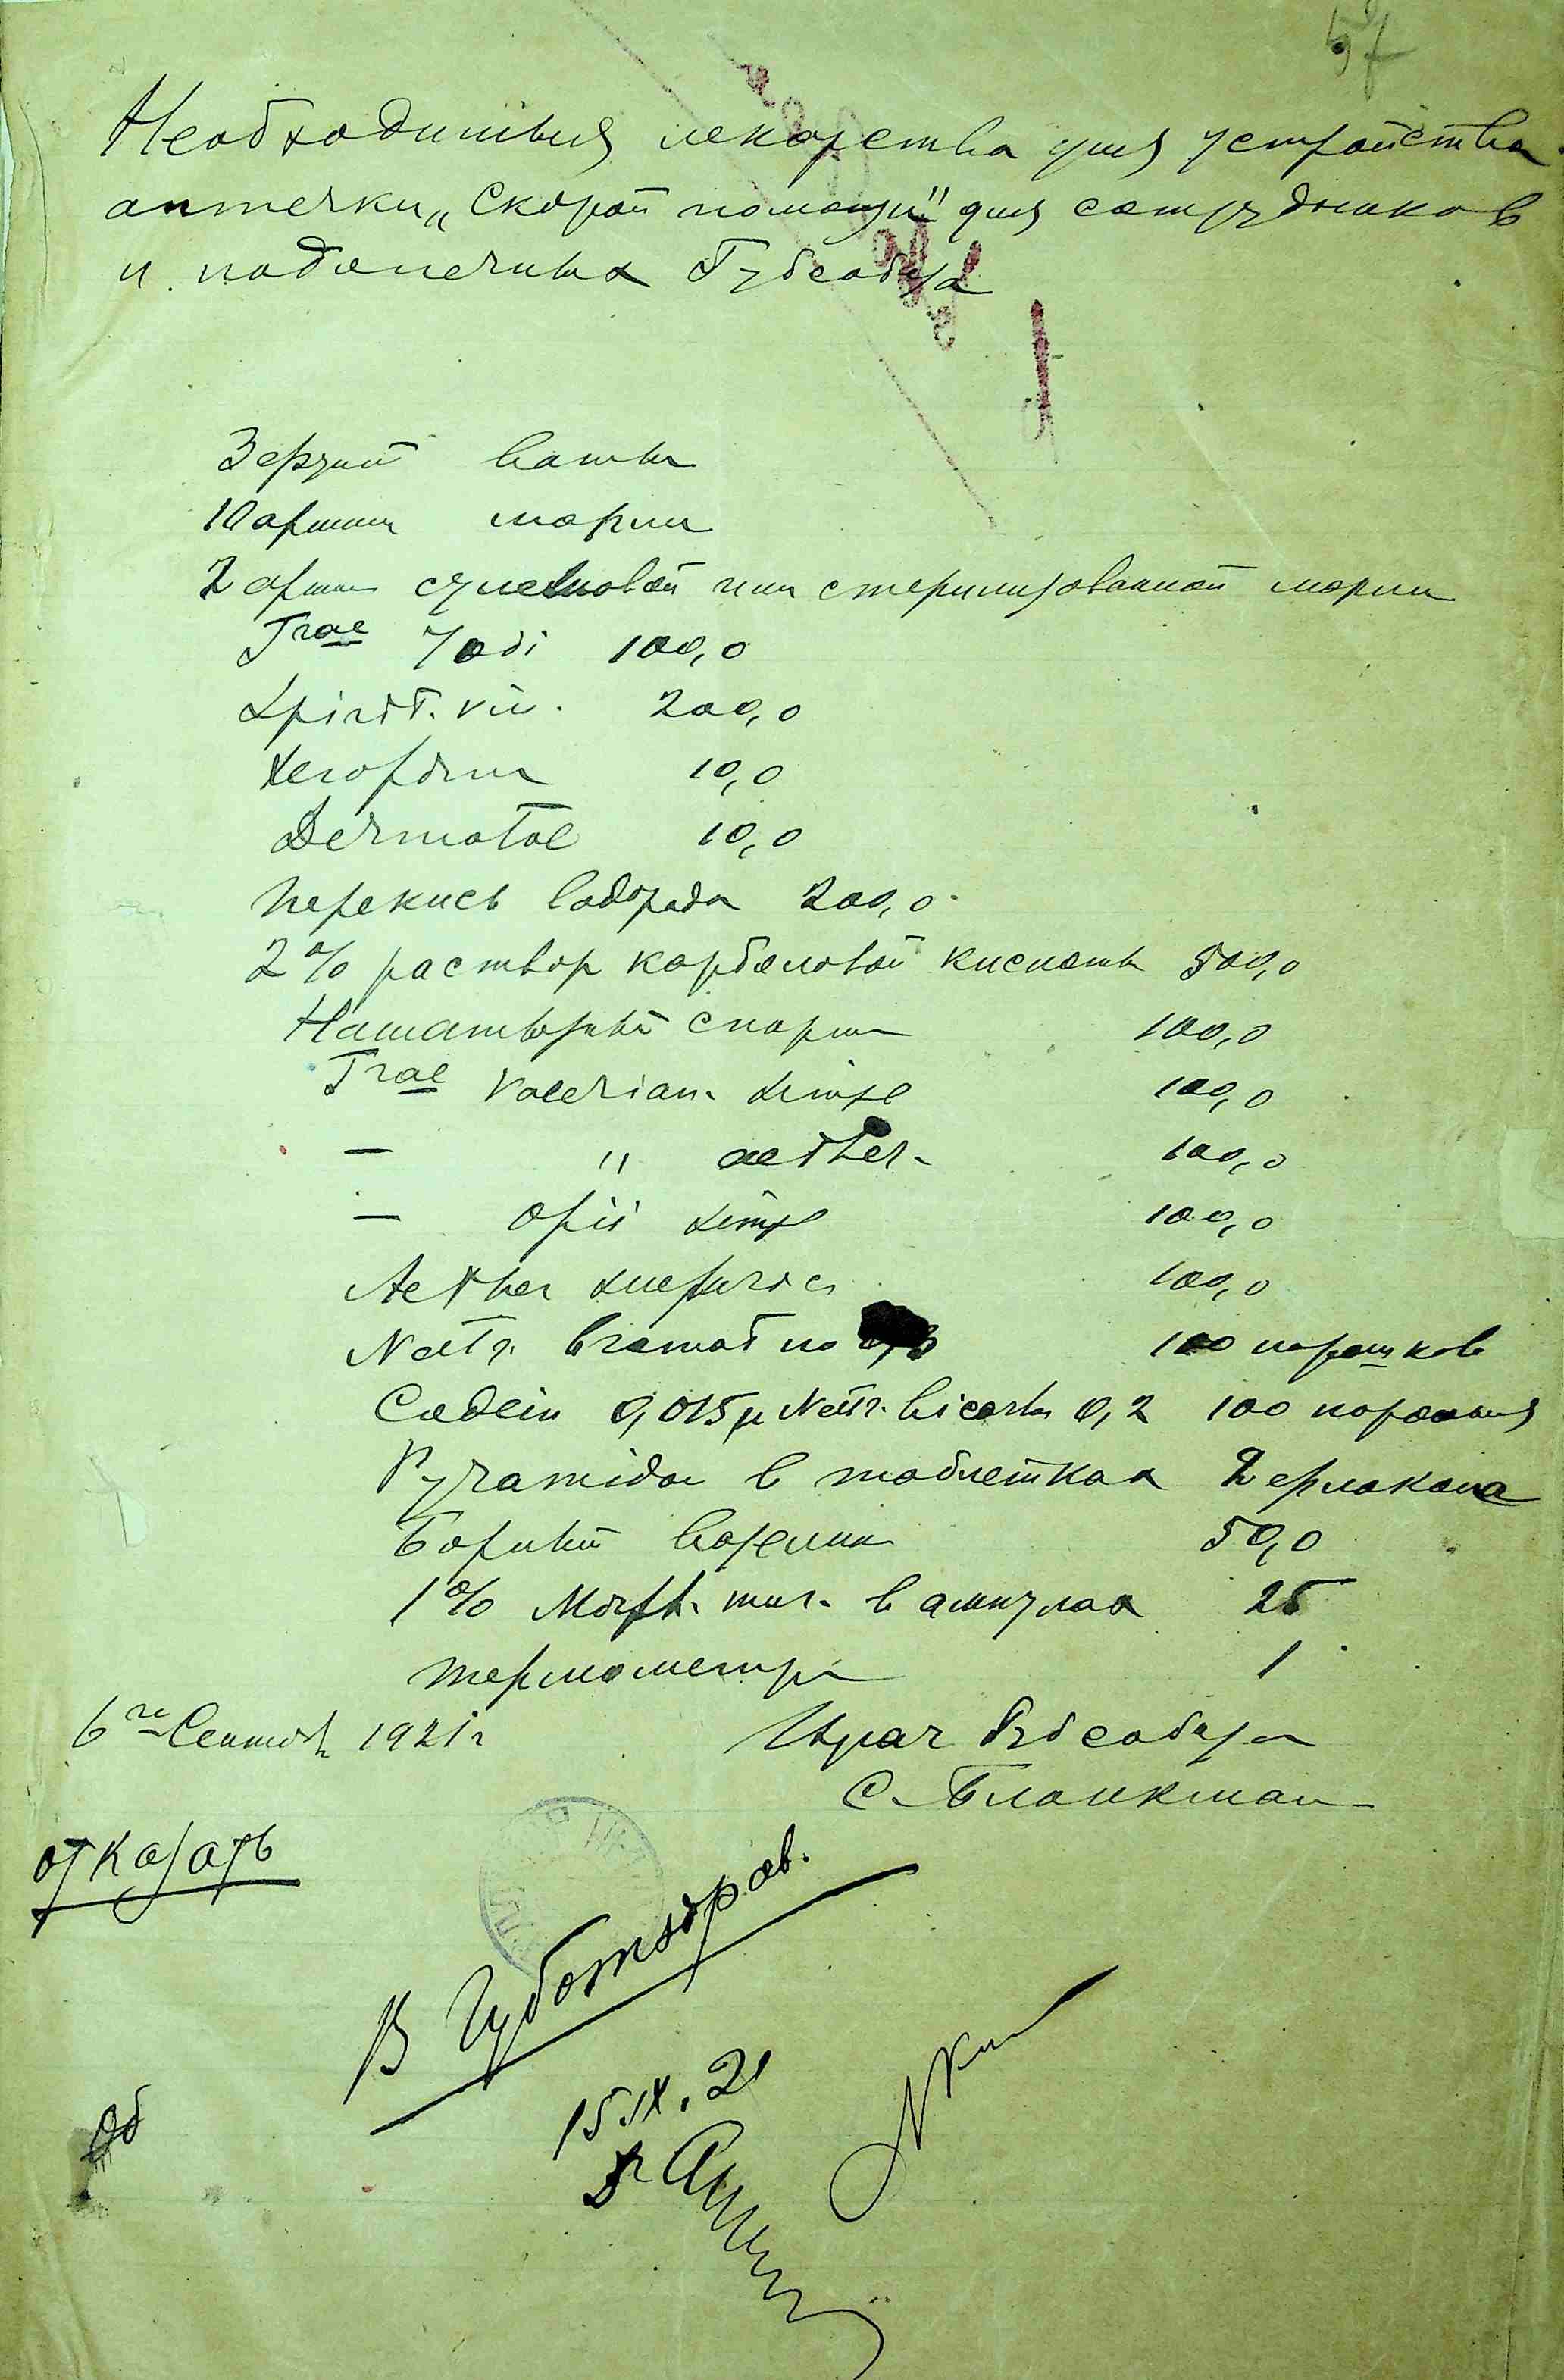 57
Необходимыя лекарства для устройства
аптечки „Скорой помощи" для сотрудников
и подопечных Губсобеза
3 ерзент ваты
10 аршин марли
2 аршин сулемовой или стерилизованной марли
T-rae Jodi 100,0
Spirit. vin. 200,0
Xeroform 10,0
Dermatol 10,0
Перекись водорода 200,0
2% раствор карболовой кислоты 500,0
Нашатырный спирт 100,0
T-rae Valerian. simpl 100,0
— " aether. 100,0
— Opii simpl 100,0
Aether sulfuric 100,0
Natr. bromat по 100 порошков
Codein 0,015 и Natr. bicarb 0,2 100 порошков
Pyramidon в таблетках 2 флакона
Борный вазелин 50,0
1% Morph. mur. в ампулах 25
термометр 1
6го Сентяб 1921 г
Врач Губсобеза
С. Бланкман
отказать
В Губотздрав.
15.IX.21